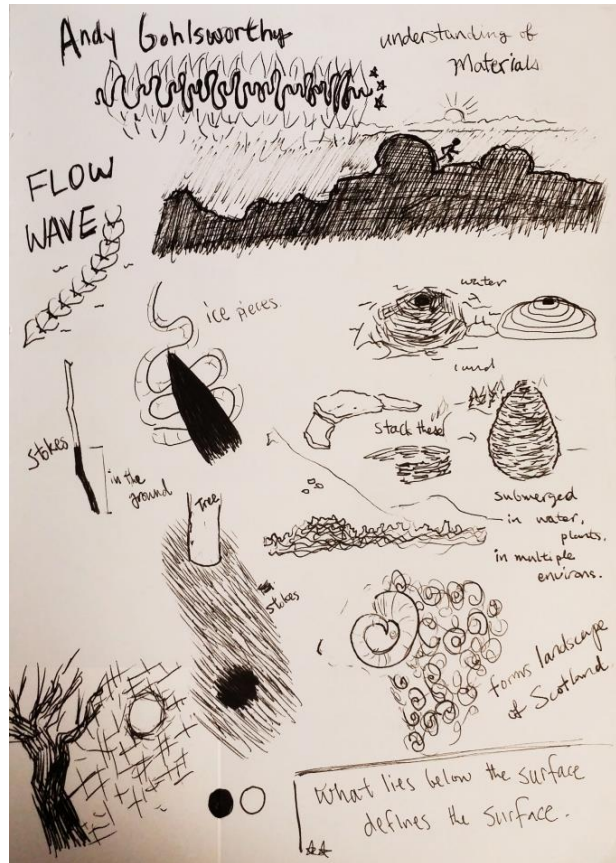 Andy Gohlsworthy
understanding of
Materials
FLOW
WAVE
ice pieces.
water
land
stakes
in the
ground
stack these
submerged
in water,
plants,
in multiple
environs.
Tree
stakes
forms landscape
of Scotland
What lies below the surface
defines the surface.